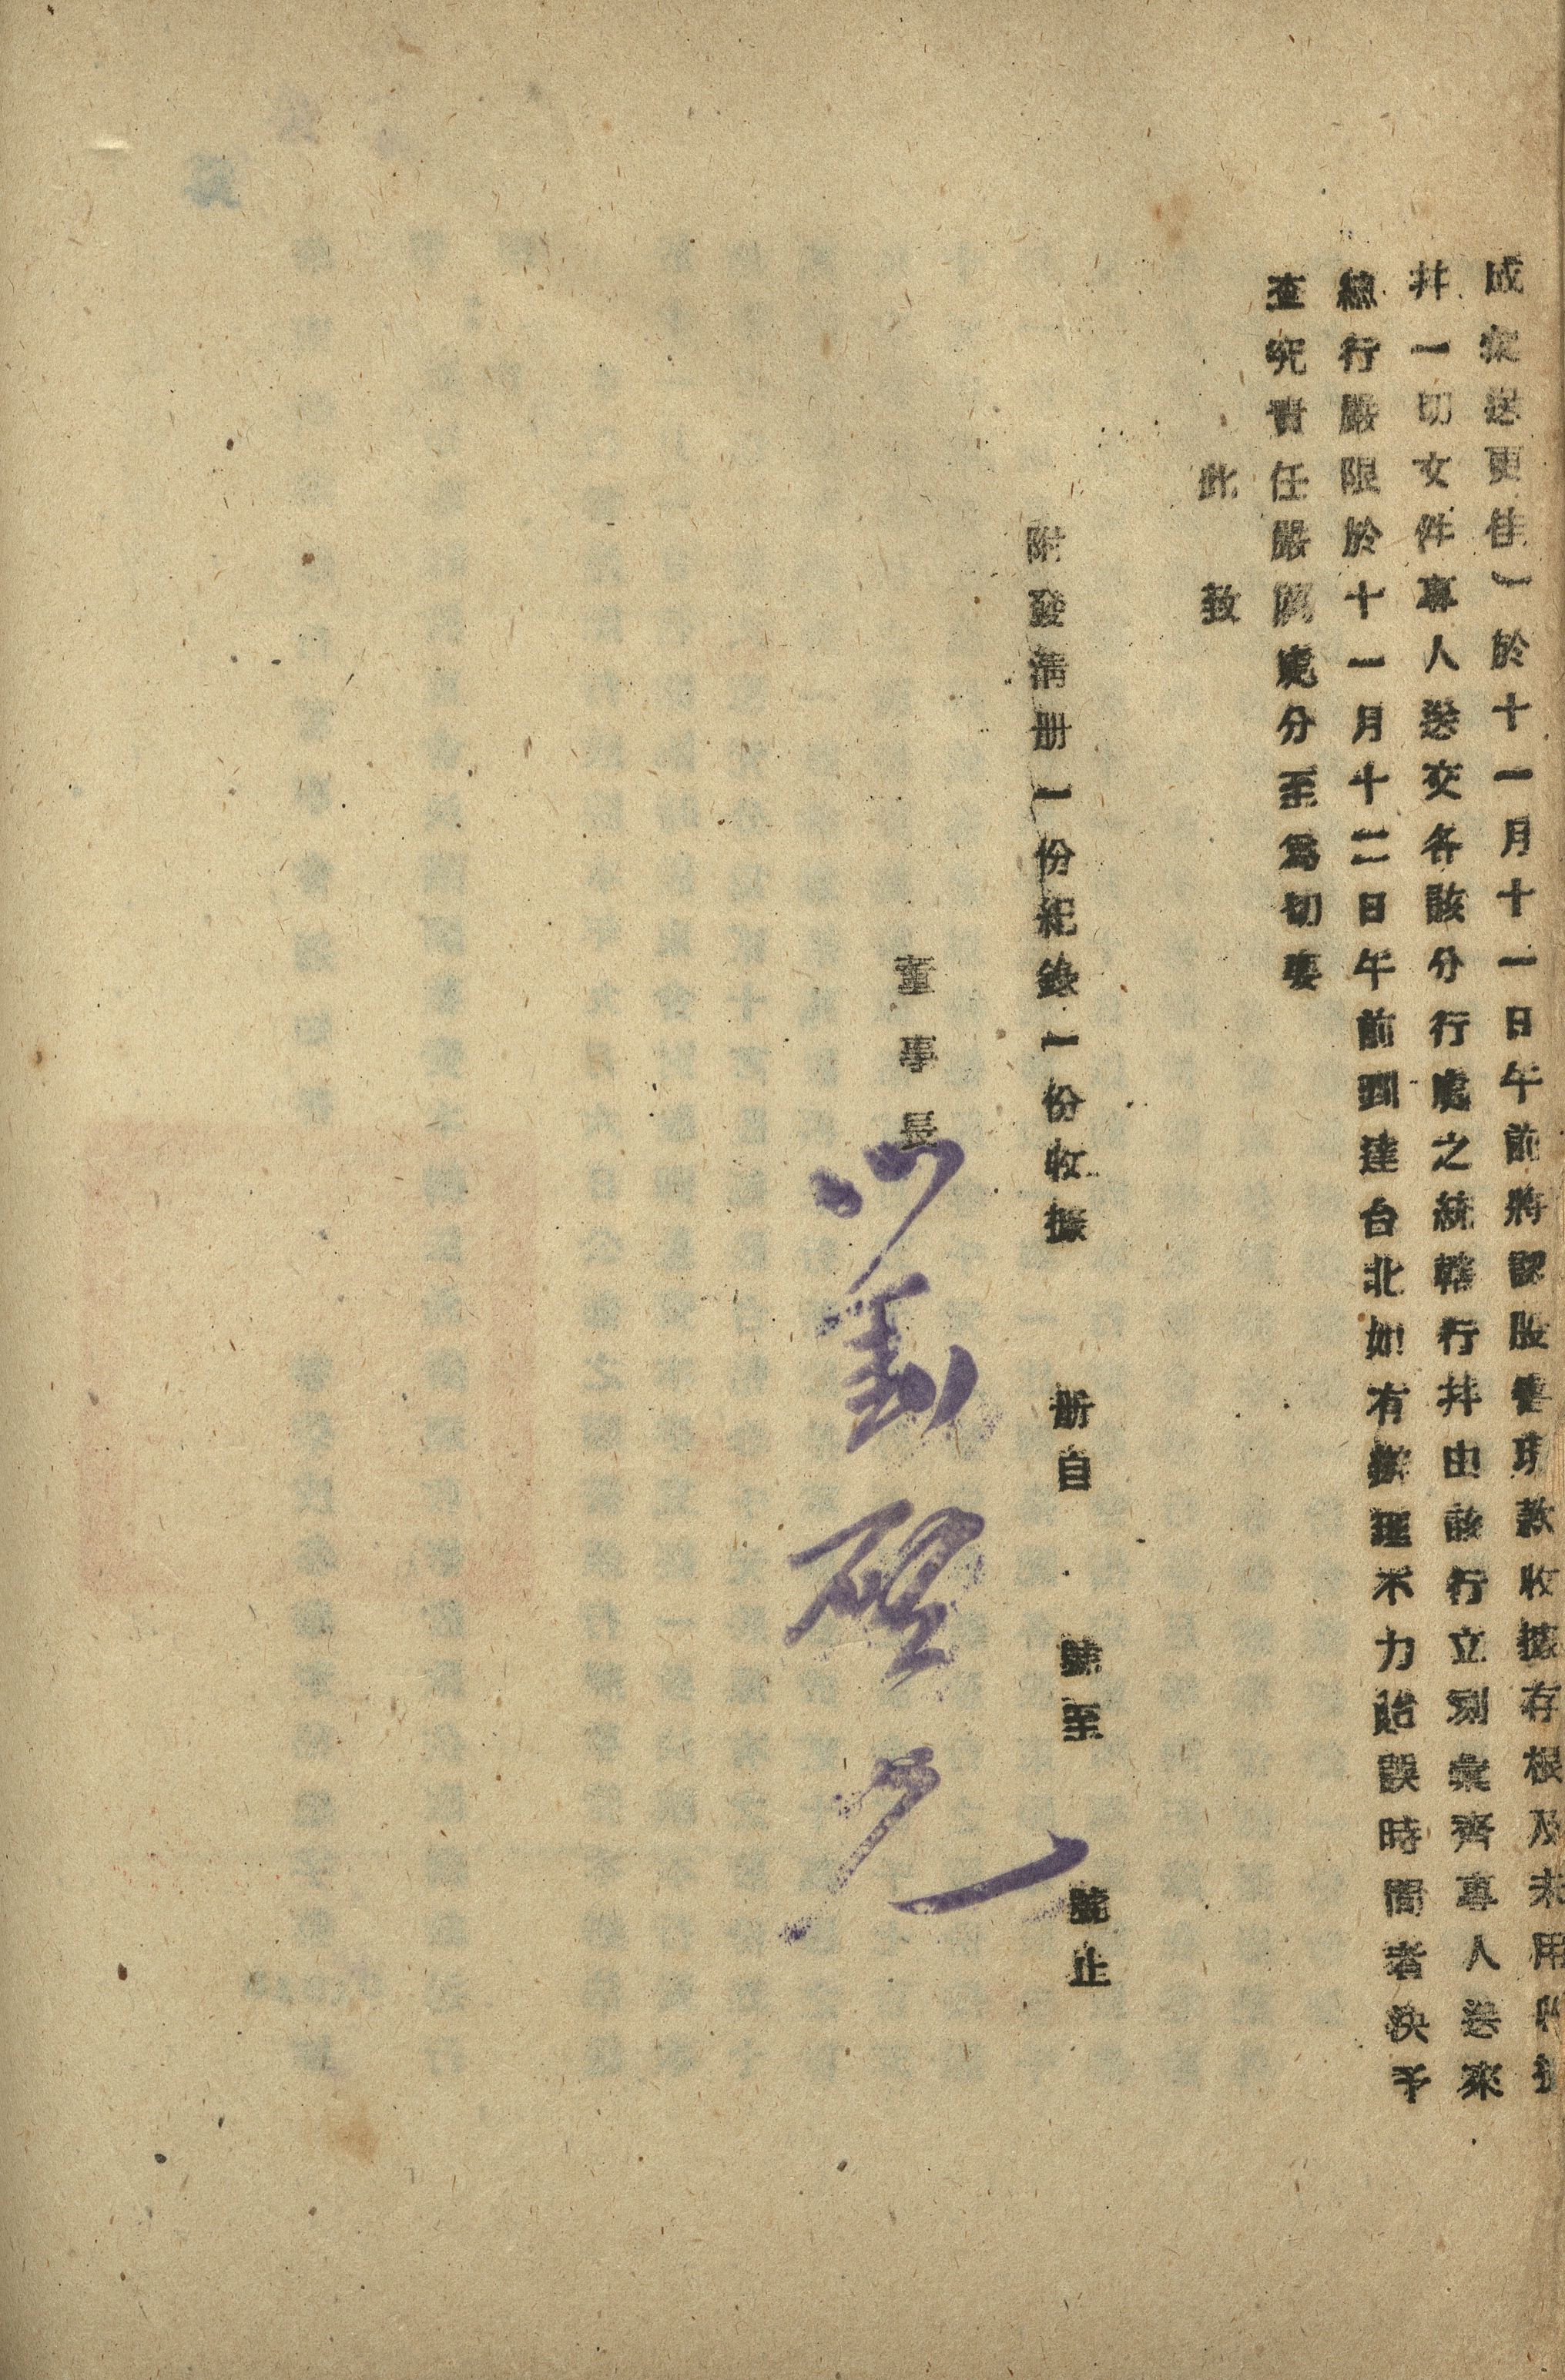 成從送更佳）於十一月十一日午前將認股書現款收據存根及未用收據
幷一切文件專人送交各該分行處之統轄行幷由該行立刻彙齊專人送來
總行嚴限於十一月十二日午前到達台北如有辦理不力貽誤時間者決予
查究責任嚴厲處分至爲切要
此 致
附發清册一份紀錄一份收據 册自 號至 號止
董事長